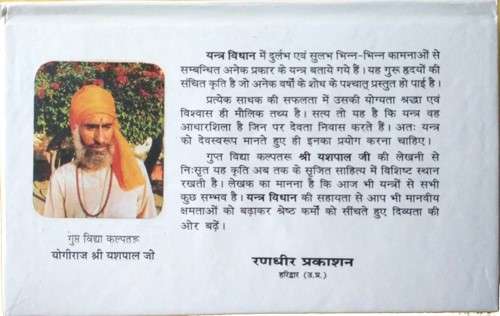 यन्त्र विधान में दुर्लभ एवं सुलभ भिन्न-भिन्न कामनाओं से
सम्बन्धित अनेक प्रकार के यन्त्र बताये गये हैं। यह गुरू हृदयों की
संचित कृति है जो अनेक वर्षों के शोध के पश्चात् प्रस्तुत हो पाई है।
प्रत्येक साधक की सफलता में उसकी योग्यता श्रद्धा एवं
विश्वास ही मौलिक तथ्य है। सत्य तो यह है कि यन्त्र वह
आधारशिला है जिन पर देवता निवास करते हैं। अतः यन्त्र
को देवस्वरूप मानते हुए ही इनका प्रयोग करना चाहिए।
गुप्त विद्या कल्पतरू श्री यशपाल जी की लेखनी से
निःसृत यह कृति अब तक के सृजित साहित्य में विशिष्ट स्थान
रखती है। लेखक का मानना है कि आज भी यन्त्रों से सभी
कुछ सम्भव है। यन्त्र विधान की सहायता से आप भी मानवीय
क्षमताओं को बढ़ाकर श्रेष्ठ कर्मों को सींचते हुए दिव्यता की
ओर बढ़ें।
गुप्त विद्या कल्पतरू
योगीराज श्री यशपाल जी
रणधीर प्रकाशन
हरिद्वार (उ.प्र.)